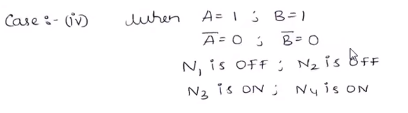 Case :- (iv) When A = 1 ; B = 1
A̅ = 0 ; B̅ = 0
N₁ is OFF ; N₂ is OFF
N₃ is ON ; N₄ is ON